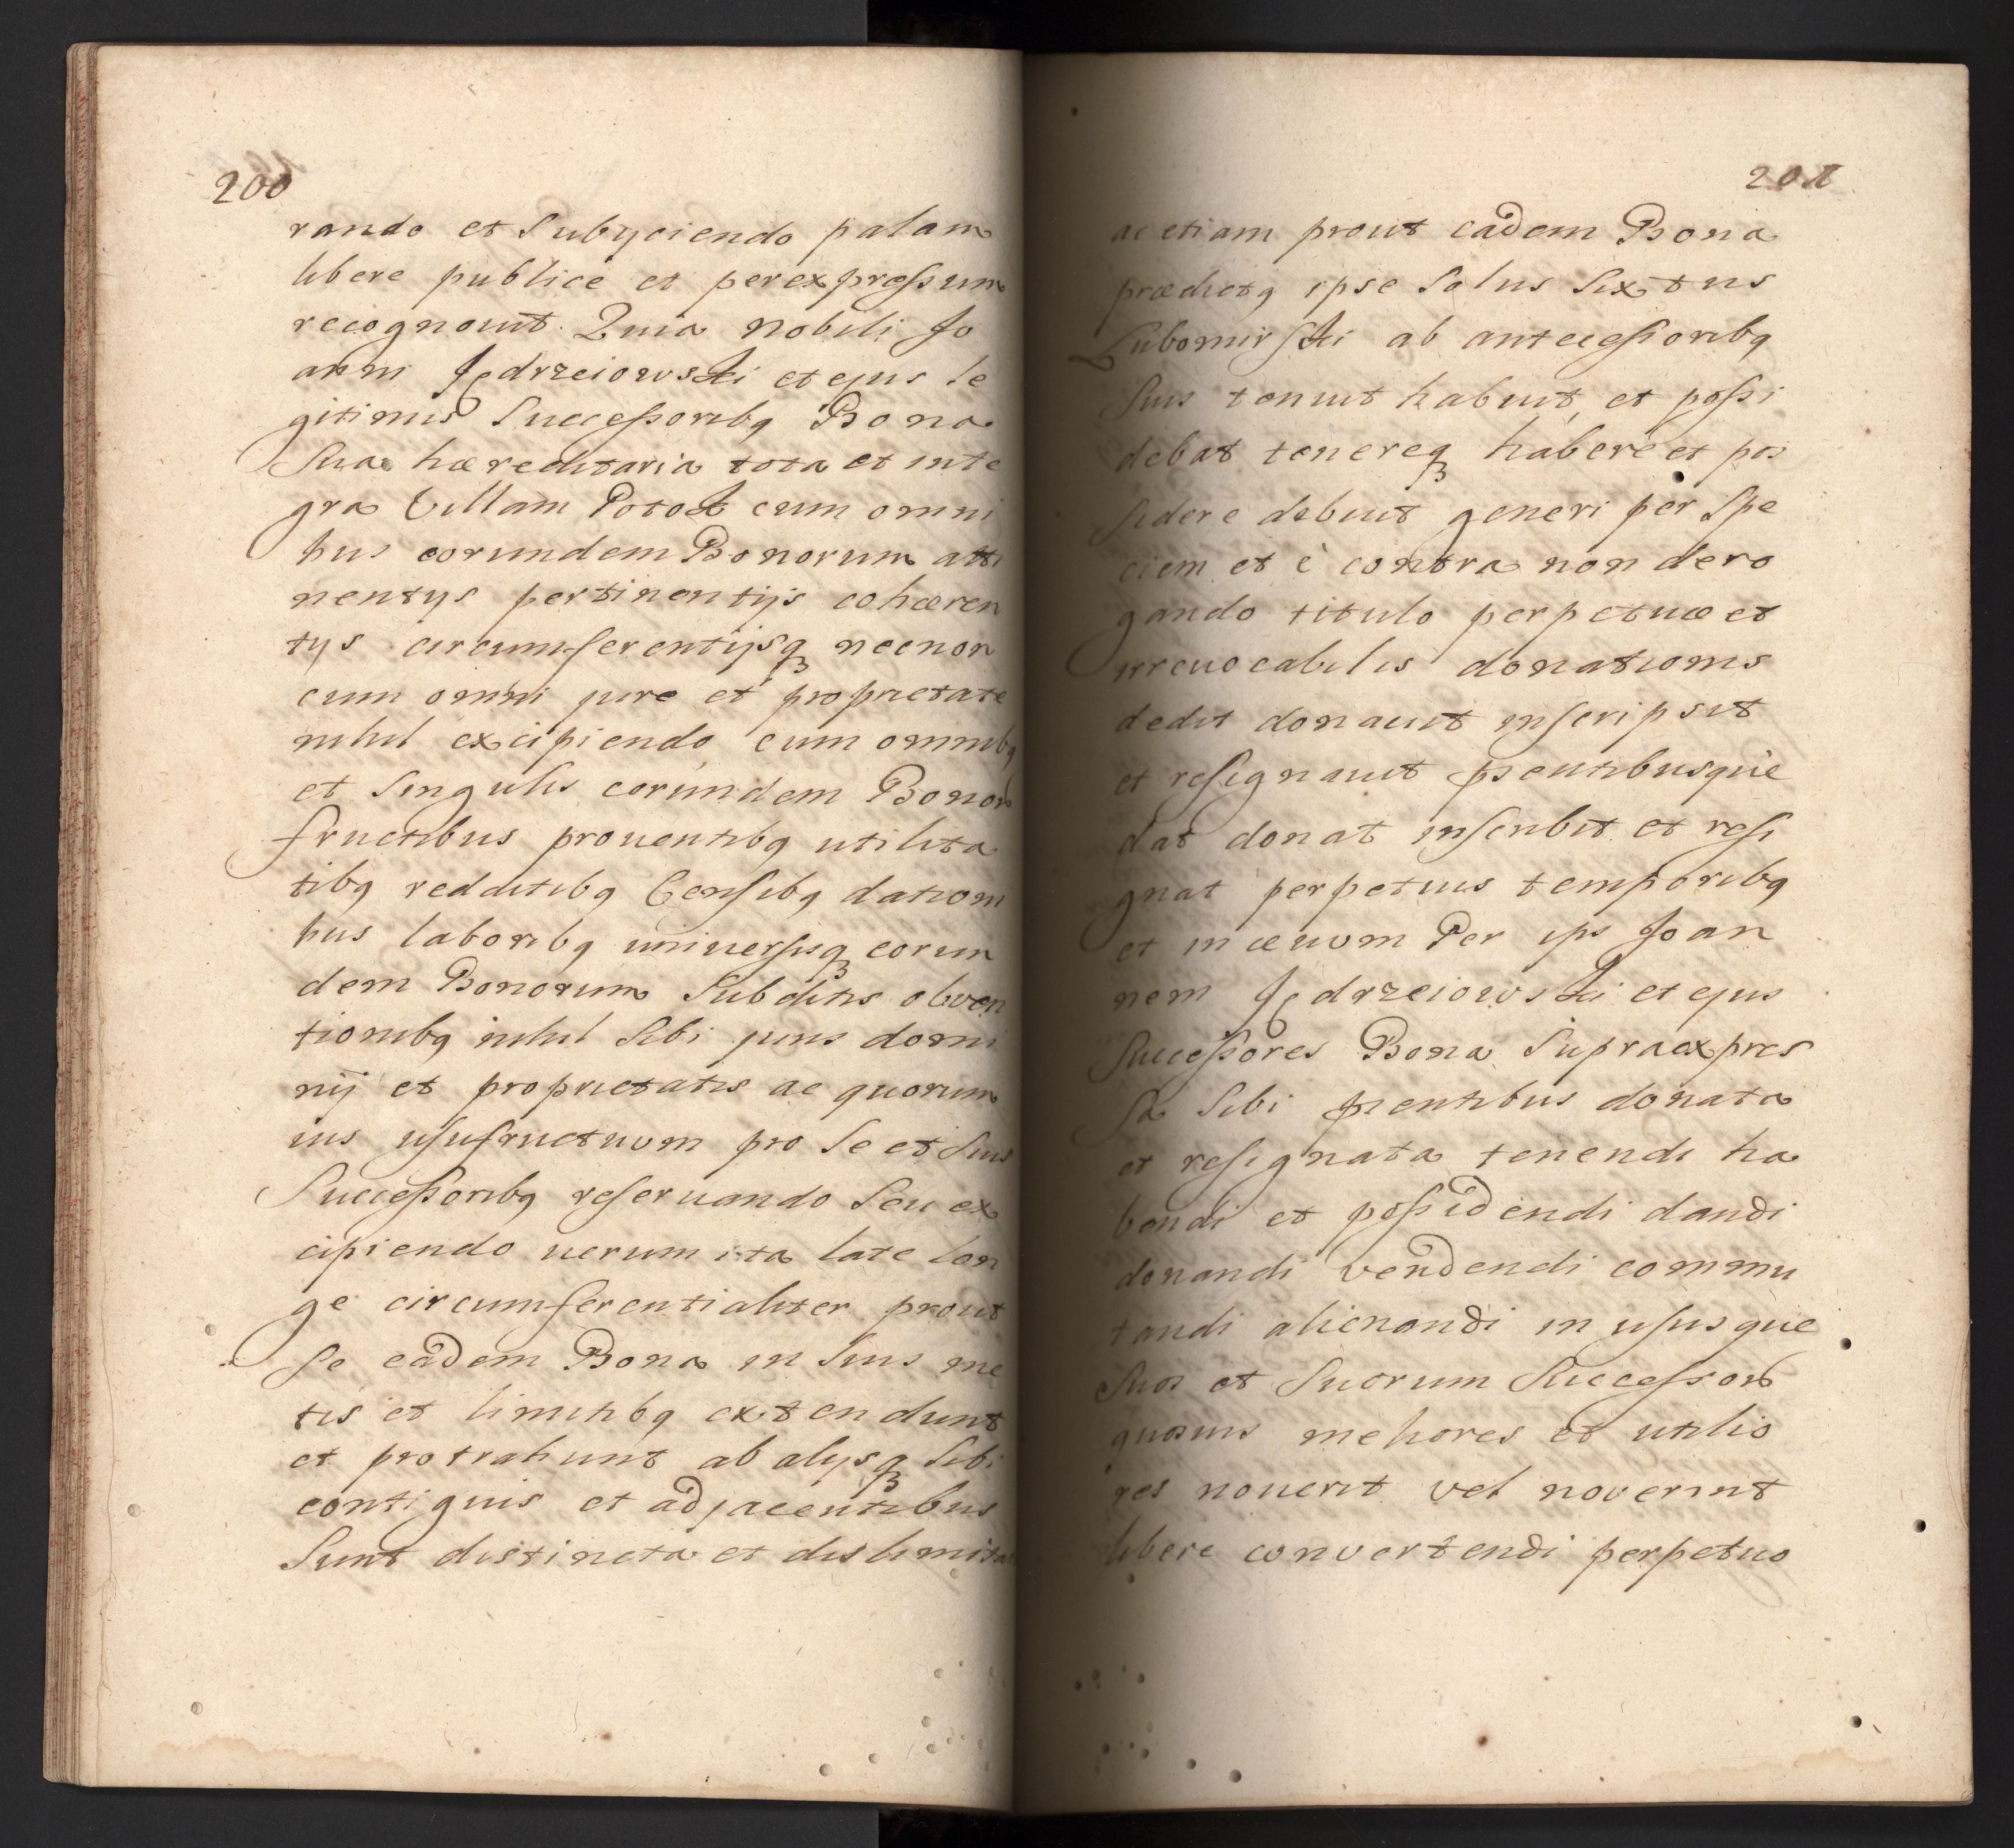 200
rando et Subyciendo palam
libere publicè et perexpressum
recognouit. Quia nobili Jo
anni Jędrzeiowski et ejus le
gitimis Successoribq Bona
Sua hæreditaria tota et inte
gra Villam Potok cum omni
bus eorundem Bonorum atti
nentys pertinentijs cohæren
tys circumferentijsqꝫ necnon
cum omni jure et proprietate
nihil excipiendo cum omnibq
et Singulis eorundem Bonorū
fructibus prouentibq utilita
tibq redditibq Censibq dationi
bus laboribq uniuersisqꝫ eorun
dem Bonorum Subditis obven
tionibq nihil Sibi juris domi
nij et proprietatis ac quorum
uis usufructuum pro Se et Suis
Successoribq reseruando Seu ex
cipiendo uerum ita late lon
ge circumferentialiter prout
Se eadem Bona in Suis me
tis et limitibq extendunt
et protrahunt ab alysqꝫ Sibi
contiguis et adjacentibus
Sunt distincta et dislimita
201
ac etiam prout eadem Bona
prædictq ipse Solus Sixtus
Lubomirski ab antecessoribq
Suis tenuit habuit, et possi
debat tenereqꝫ habere et pos
sidere debuit generi per Spe
ciem et è contra non dero
gando titulo perpetuæ et
irreuocabilis donationis
dedit donauit inscripsit
et resignauit pñentibusque
dat donat inscribit et resi
gnat perpetuis temporibq
et in æuum Per ips Joan
nem Jędrzeiowski et ejus
Successores Bona Supraexpres
sa Sibi pñentibus donata
et resignata tenendi ha
bendi et possidendi dandi
donandi vendendi commu
tandi alienandi in usus que
Suos et Suorum Successorū
quosuis meliores et utilio
res nouerit vel noverint
libere convertendi perpetuo